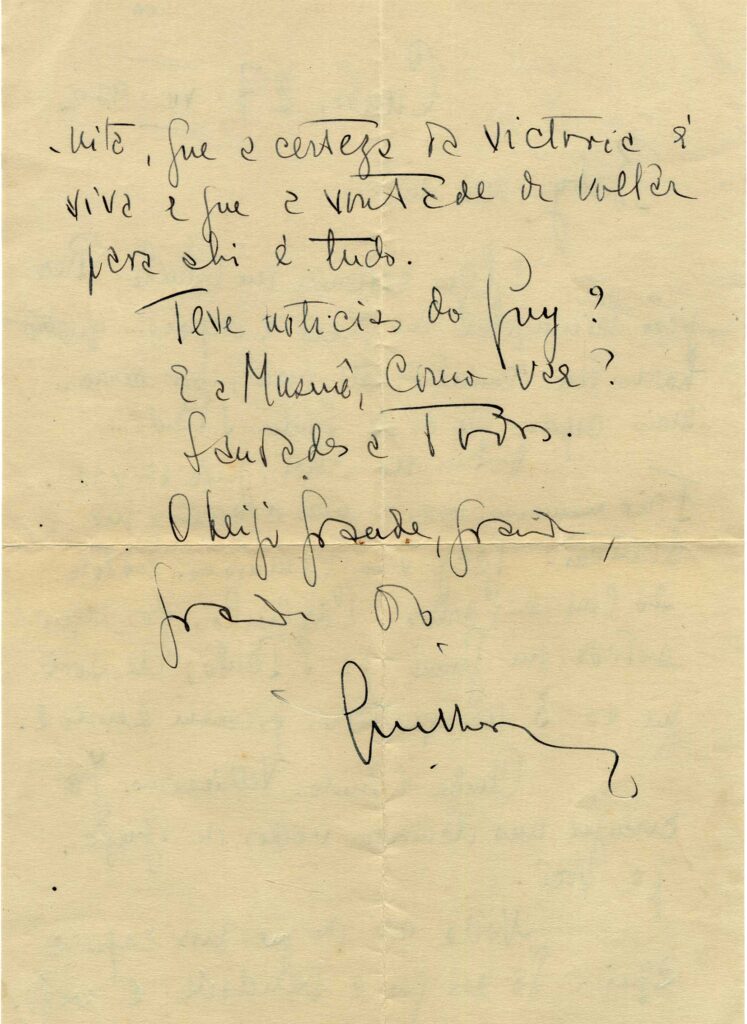 -nita, que a certeza da victoria é
viva e que a vontade de voltar
para ahi é tudo.
Teve noticias do Guy?
E a Musmê, como vae?
Saudades a todos.
O beijo grande, grande,
grande do
Guilherme